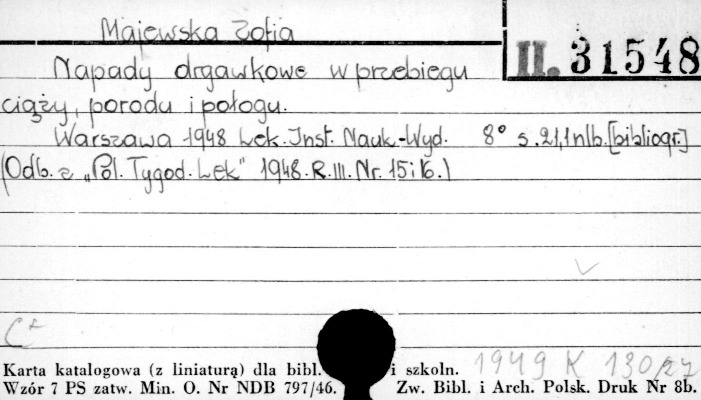 Majewska Zofia
II. 31548
Napady drgawkowe w przebiegu
ciąży, porodu i połogu.
Warszawa 1948 Lek. Inst. Nauk.-Wyd. 8° s. 21, 1 nlb. [bibliogr.]
(Odb. z „Pol. Tygod. Lek" 1948. R. III. Nr. 15 i 16.)
1949 K 130/27
Karta katalogowa (z liniaturą) dla bibl. i szkoln.
Wzór 7 PS zatw. Min. O. Nr NDB 797/46. Zw. Bibl. i Arch. Polsk. Druk Nr 8b.